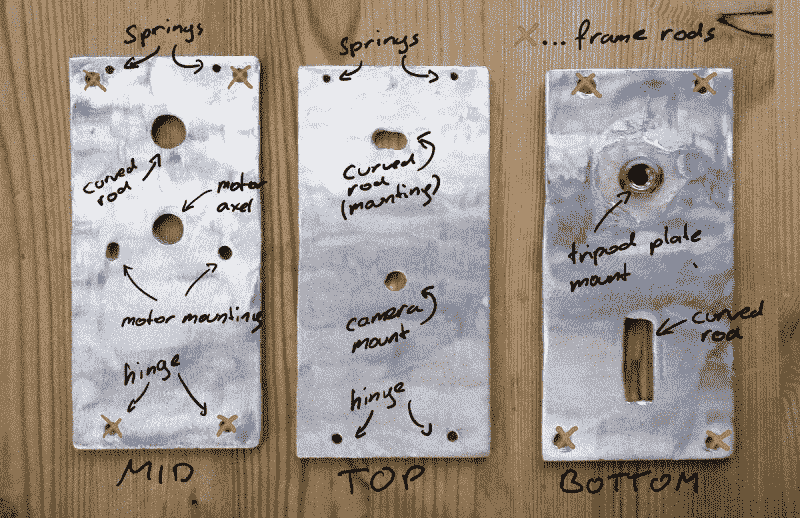 Springs
curved
rod
motor
axel
motor mounting
hinge
MID
Springs
curved
rod
(mounting)
camera
mount
hinge
TOP
x...frame rods
tripod plate
mount
curved
rod
BOTTOM